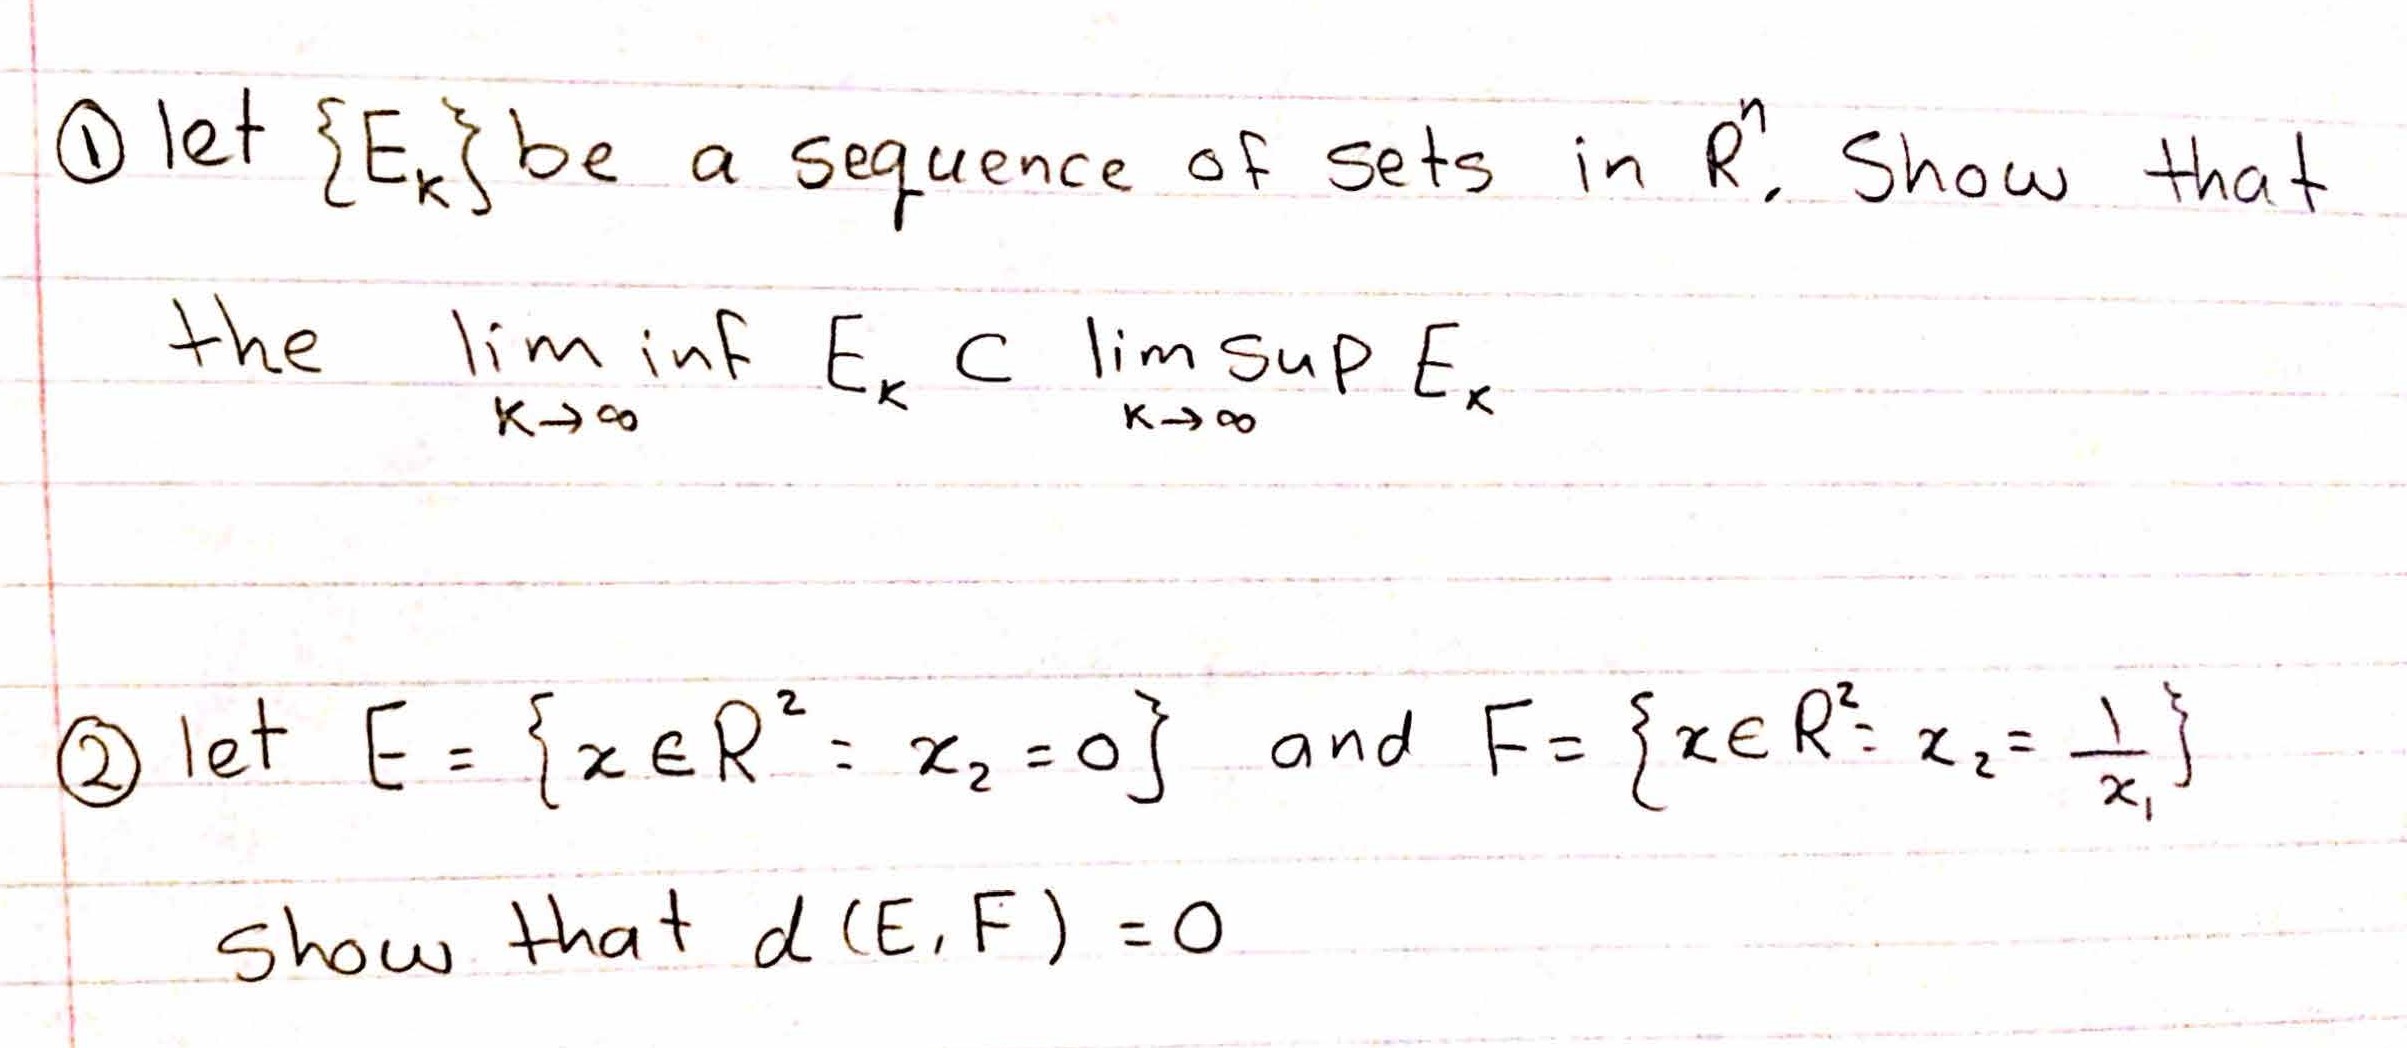 ① let {Eₖ} be a sequence of sets in Rⁿ. Show that
the lim inf Eₖ ⊂ lim sup Eₖ
k→∞ k→∞
② let E = {x ∈ R² : x₂ = 0} and F = {x ∈ R² : x₂ = 1/x₁}
show that d(E, F) = 0